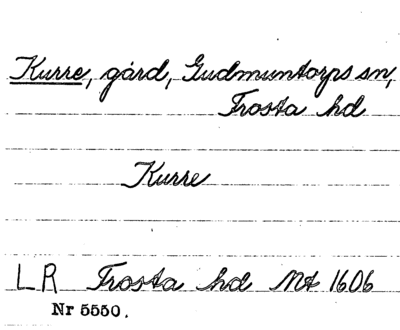 Kurre, gård, Gudmuntorps sn,
Frosta hd
Kurre
LR Frosta hd Mt 1606
Nr 5550.